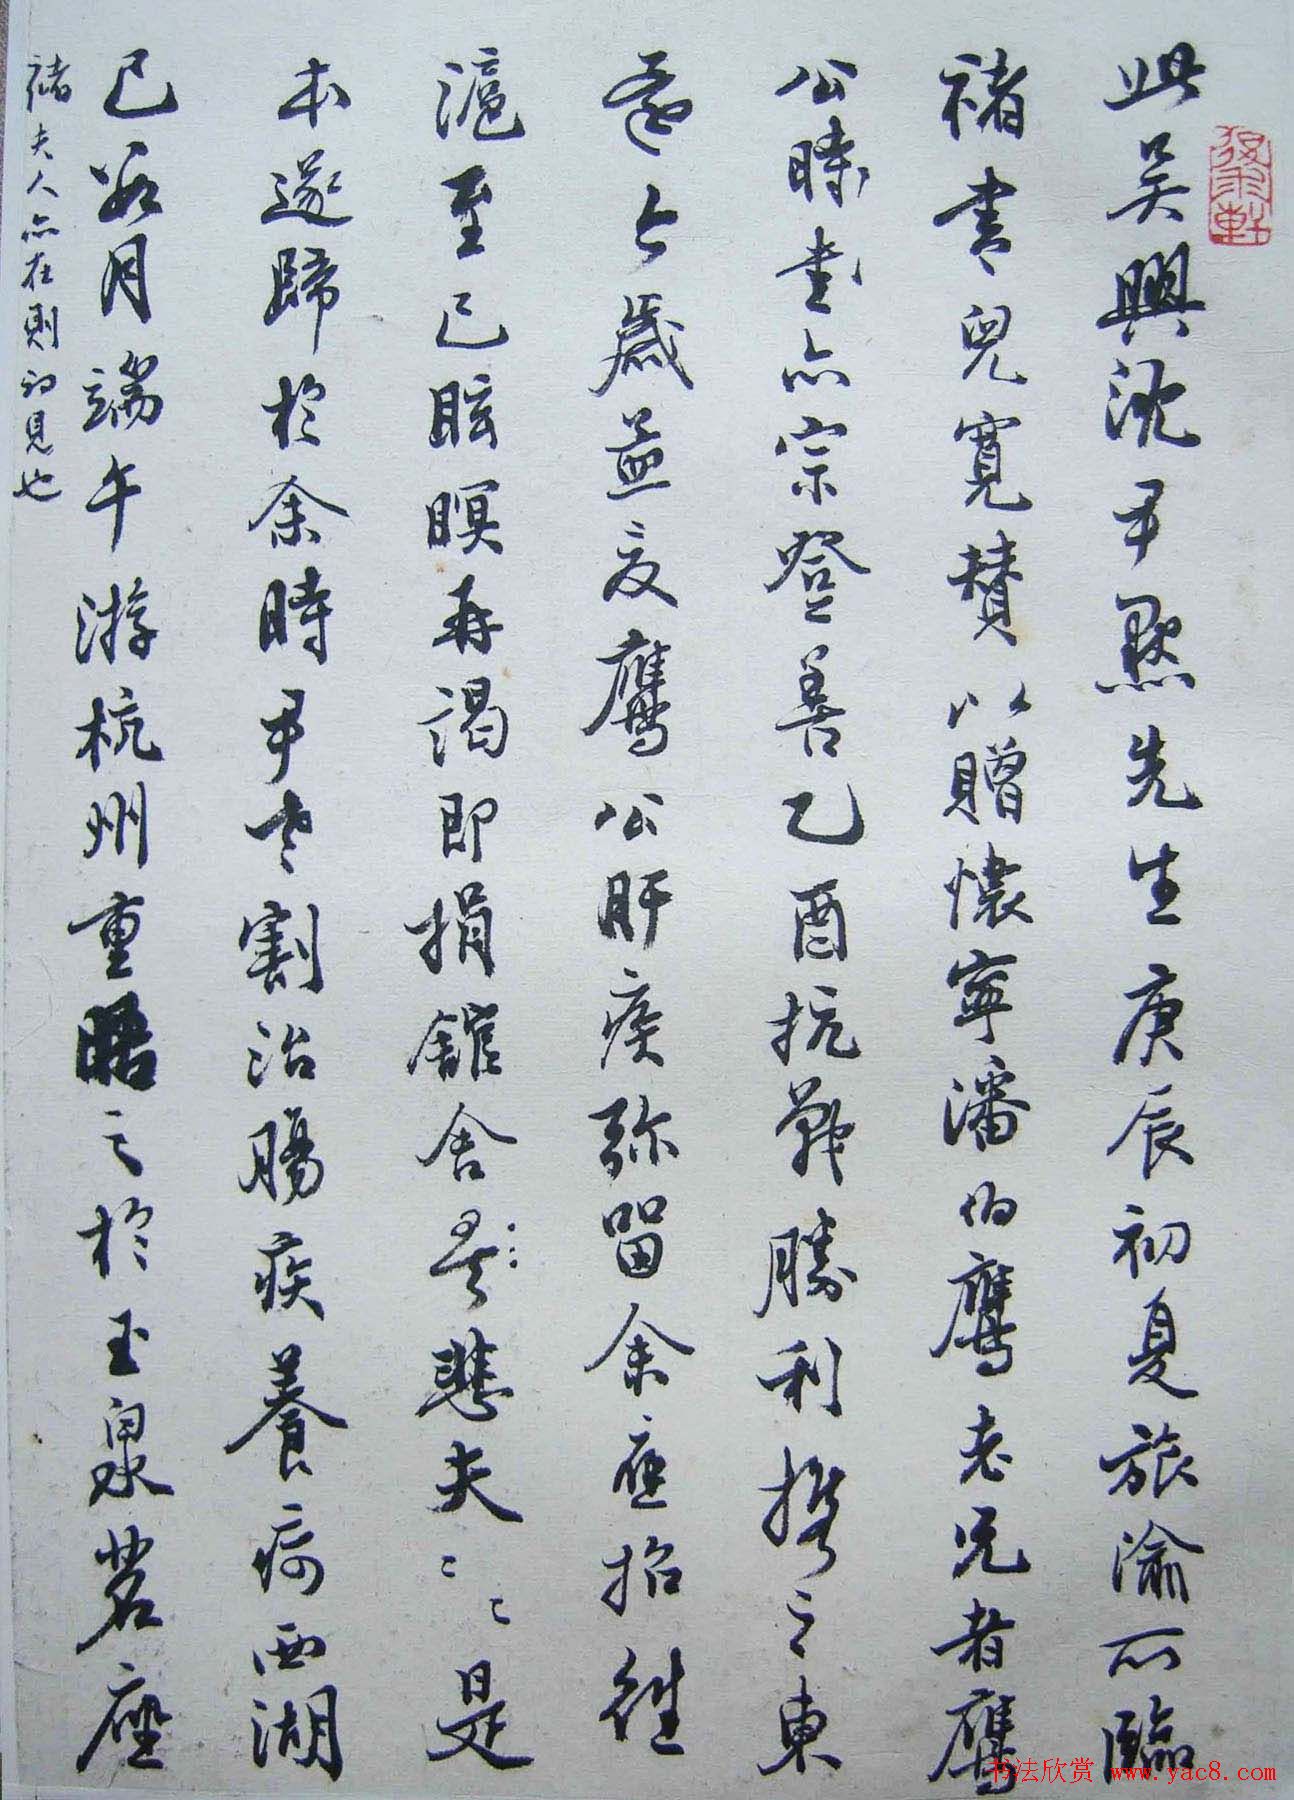 此吴興沈尹默先生庚辰初夏旅渝所臨
褚書兒寬贊以贈懷寧潘伯鷹老兄者鷹
公書亦宗登善乙酉抗戰勝利携之東
今歲孟夏鷹公肝疾彌留余應招往
滬至已眩瞑再謁即捐館舍矣悲夫〻〻是
本遂歸於余時尹老割治腸疾養疴西湖
已數月端午游杭州重晤之於玉泉茗座
褚夫人亦在則初見也
书法欣赏 www.yac8.com